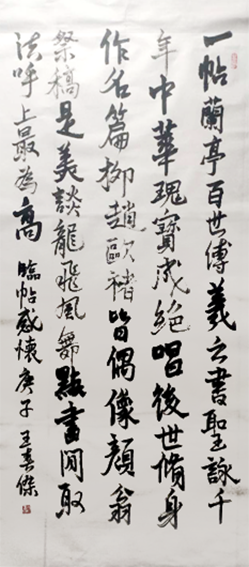 一帖蘭亭百世傳羲之書聖詠千
年中華瑰寶成絕唱後世脩身
作名篇柳趙歐褚皆偶像顏翁
祭稿是美談龍飛鳳舞點畫間取
法乎上最為高臨帖感懷庚子王春傑